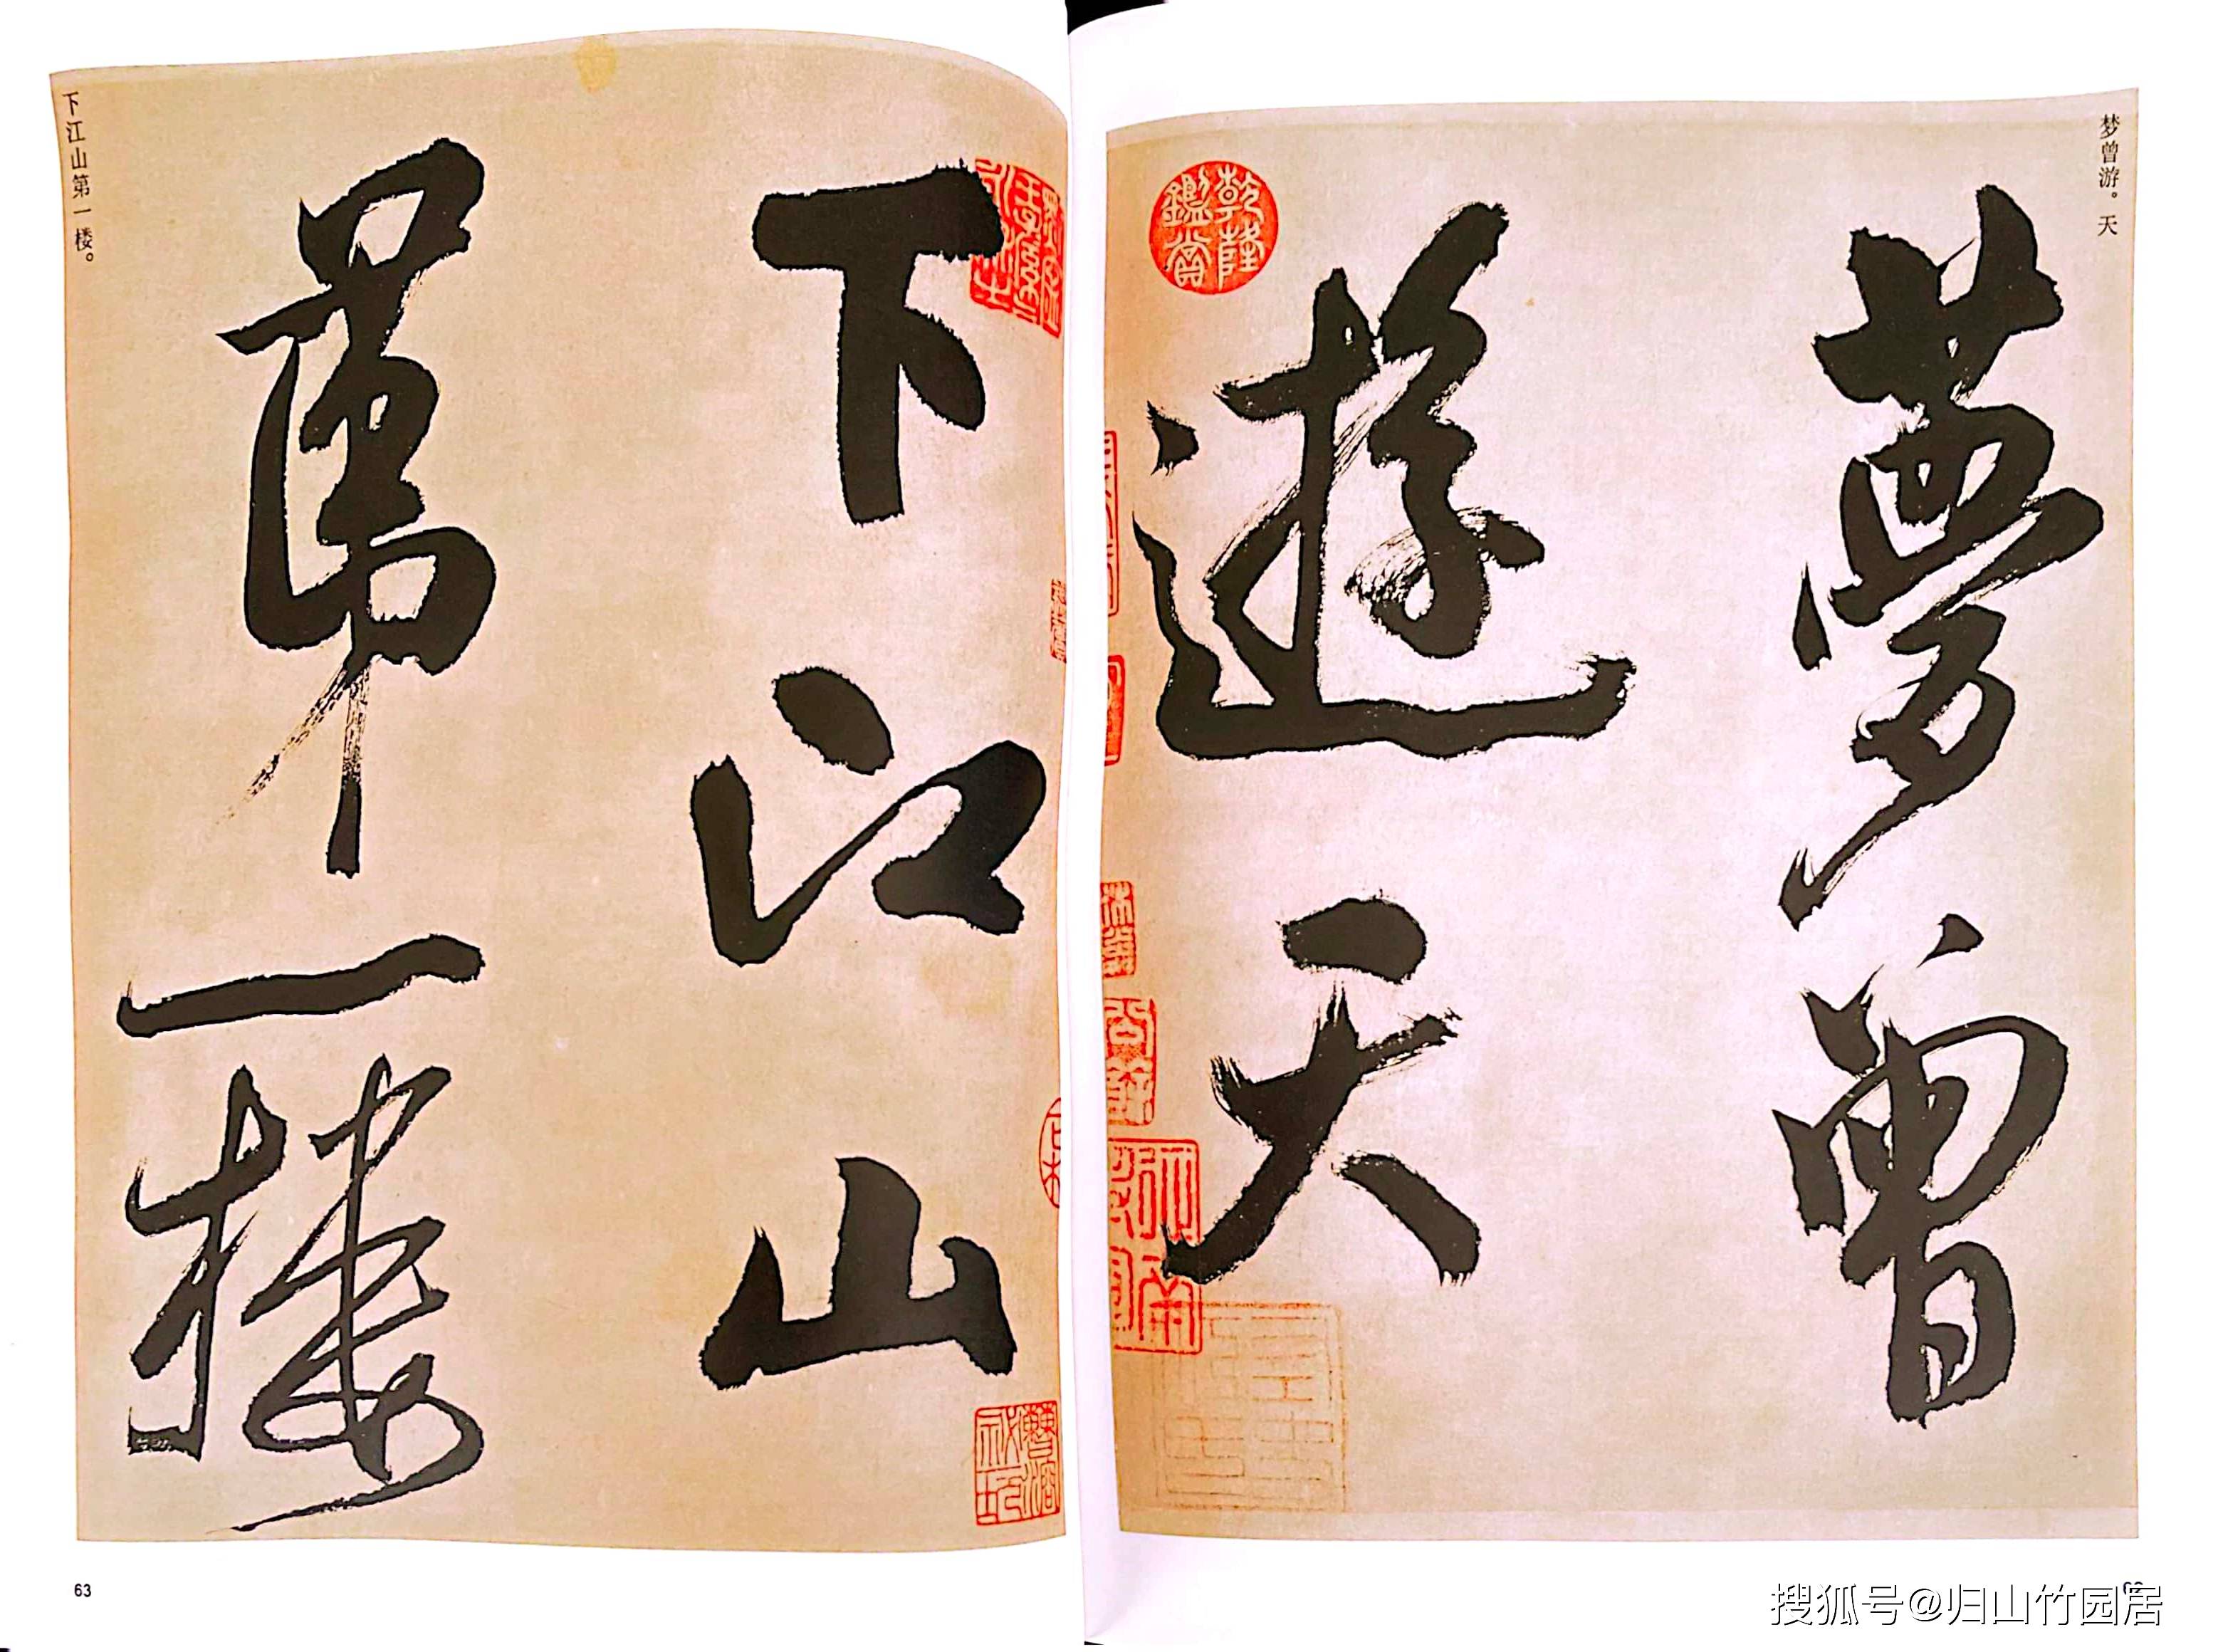 梦曾游。天
夢曾
遊天
乾隆
鑑賞
下江山
第一楼
下江山第一楼。
63
搜狐号@归山竹园居